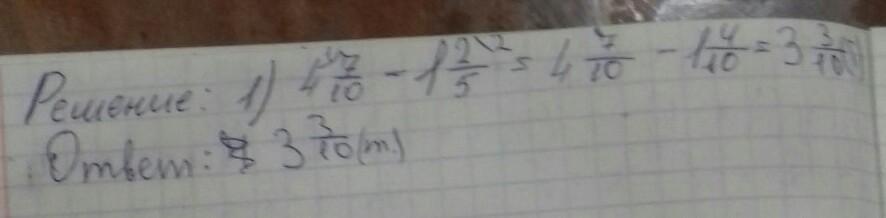 Решение: 1) 4 7/10 - 1 2\2/5 = 4 7/10 - 1 4/10 = 3 3/10 (т)
Ответ: 3 3/10 (т.)